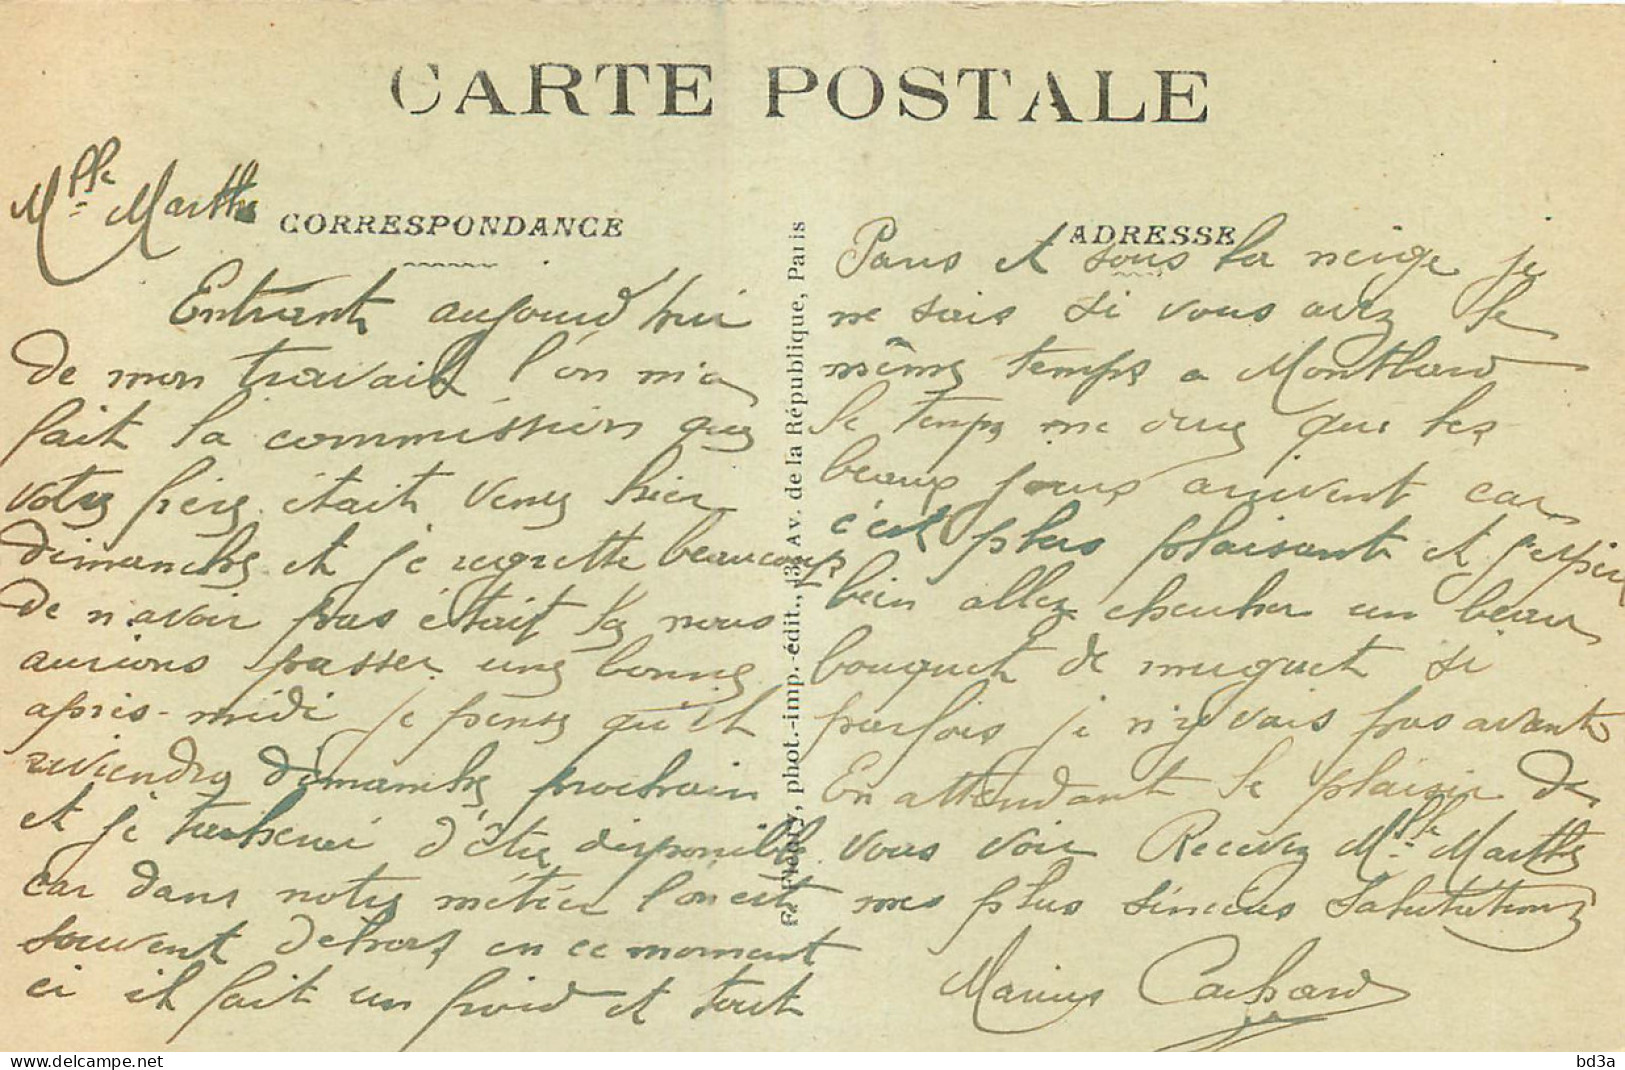 CARTE POSTALE
CORRESPONDANCE
ADRESSE
Mlle Marthe
Entrant aujourd'hui
de mon travail l'on m'a
fait la commission que
votre frère était venu hier
dimanche et je regrette beaucoup
de n'avoir pas était la nous
aurions passer une bonne
après-midi je pense qu'il
reviendra dimanche prochain
et je tacherai d'être disponible
car dans notre métier l'on est
souvent dehors en ce moment
ci il fait un froid et tout
F. Fleury, phot.-imp.-édit., 13, Av. de la République, Paris
Paris et sous la neige je
ne sais si vous avez le
même temps a Montbard
le temps me dure que les
beaux jours arrivent car
c'est plus plaisant et j'espère
bien allez chercher un beau
bouquet de muguet si
parfois je n'y vais pas avant
En attendant le plaisir de
vous voir Recevez Mlle Marthe
mes plus sincères Salutations
Marius Cachard
www.delcampe.net
bd3a